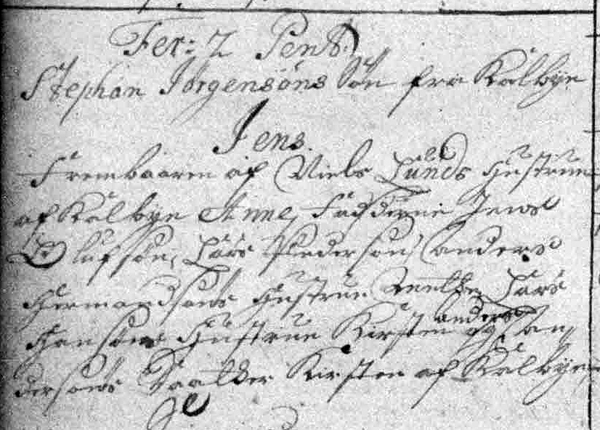 Fer: 2 Pent.
Stephan Jörgensöns Sön fra Kalbye
Jens.
Frembaaren af Niels Lunds Hustrue
af Kalbye Anne, Fadderne Jens
Olufsön, Lars Pedersön, anders
Hermandsöns Hustrue Lars
Hansöns Hustrue Kirsten anders
dersöns Kirsten af Kalbye